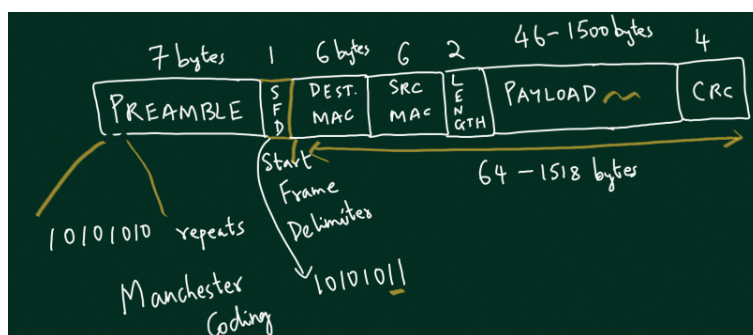 7 bytes 1 6 bytes 6 2 46-1500 bytes 4
PREAMBLE SFD DEST. MAC SRC MAC LENGTH PAYLOAD CRC
64-1518 bytes
Start
Frame
Delimiter
10101010 repeats
10101011
Manchester
Coding